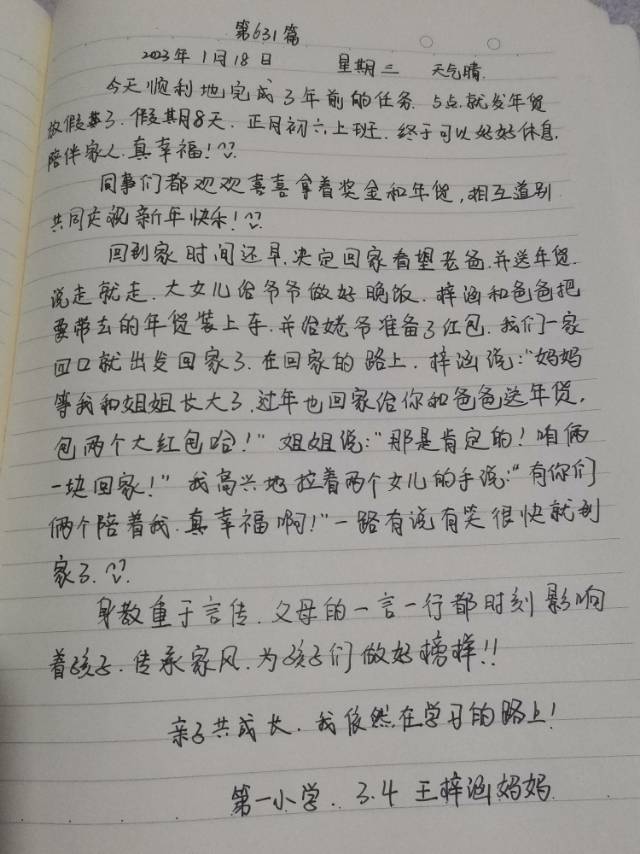 第631篇
2023年1月18日 星期三 天气晴.
今天顺利地完成了年前的任务.5点就发年货
放假了.假期8天.正月初六上班.终于可以好好休息.
陪伴家人.真幸福!
同事们都欢欢喜喜拿着奖金和年货,相互道别
共同庆祝新年快乐!
回到家时间还早.决定回家看望老爸.并送年货.
说走就走.大女儿给爷爷做好晚饭.梓涵和爸爸把
要带去的年货装上车.并给姥爷准备了红包.我们一家
四口就出发回家了.在回家的路上.梓涵说:"妈妈
等我和姐姐长大了.过年也回家给你和爸爸送年货,
包两个大红包哈!"姐姐说:"那是肯定的!咱俩
一块回家!"我高兴地拉着两个女儿的手说:"有你们
俩个陪着我.真幸福啊!"一路有说有笑很快就到
家了.
身教重于言传.父母的一言一行都时刻影响
着孩子.传承家风.为孩子们做好榜样!!
亲子共成长.我依然在学习的路上!
第一小学.3.4 王梓涵妈妈.